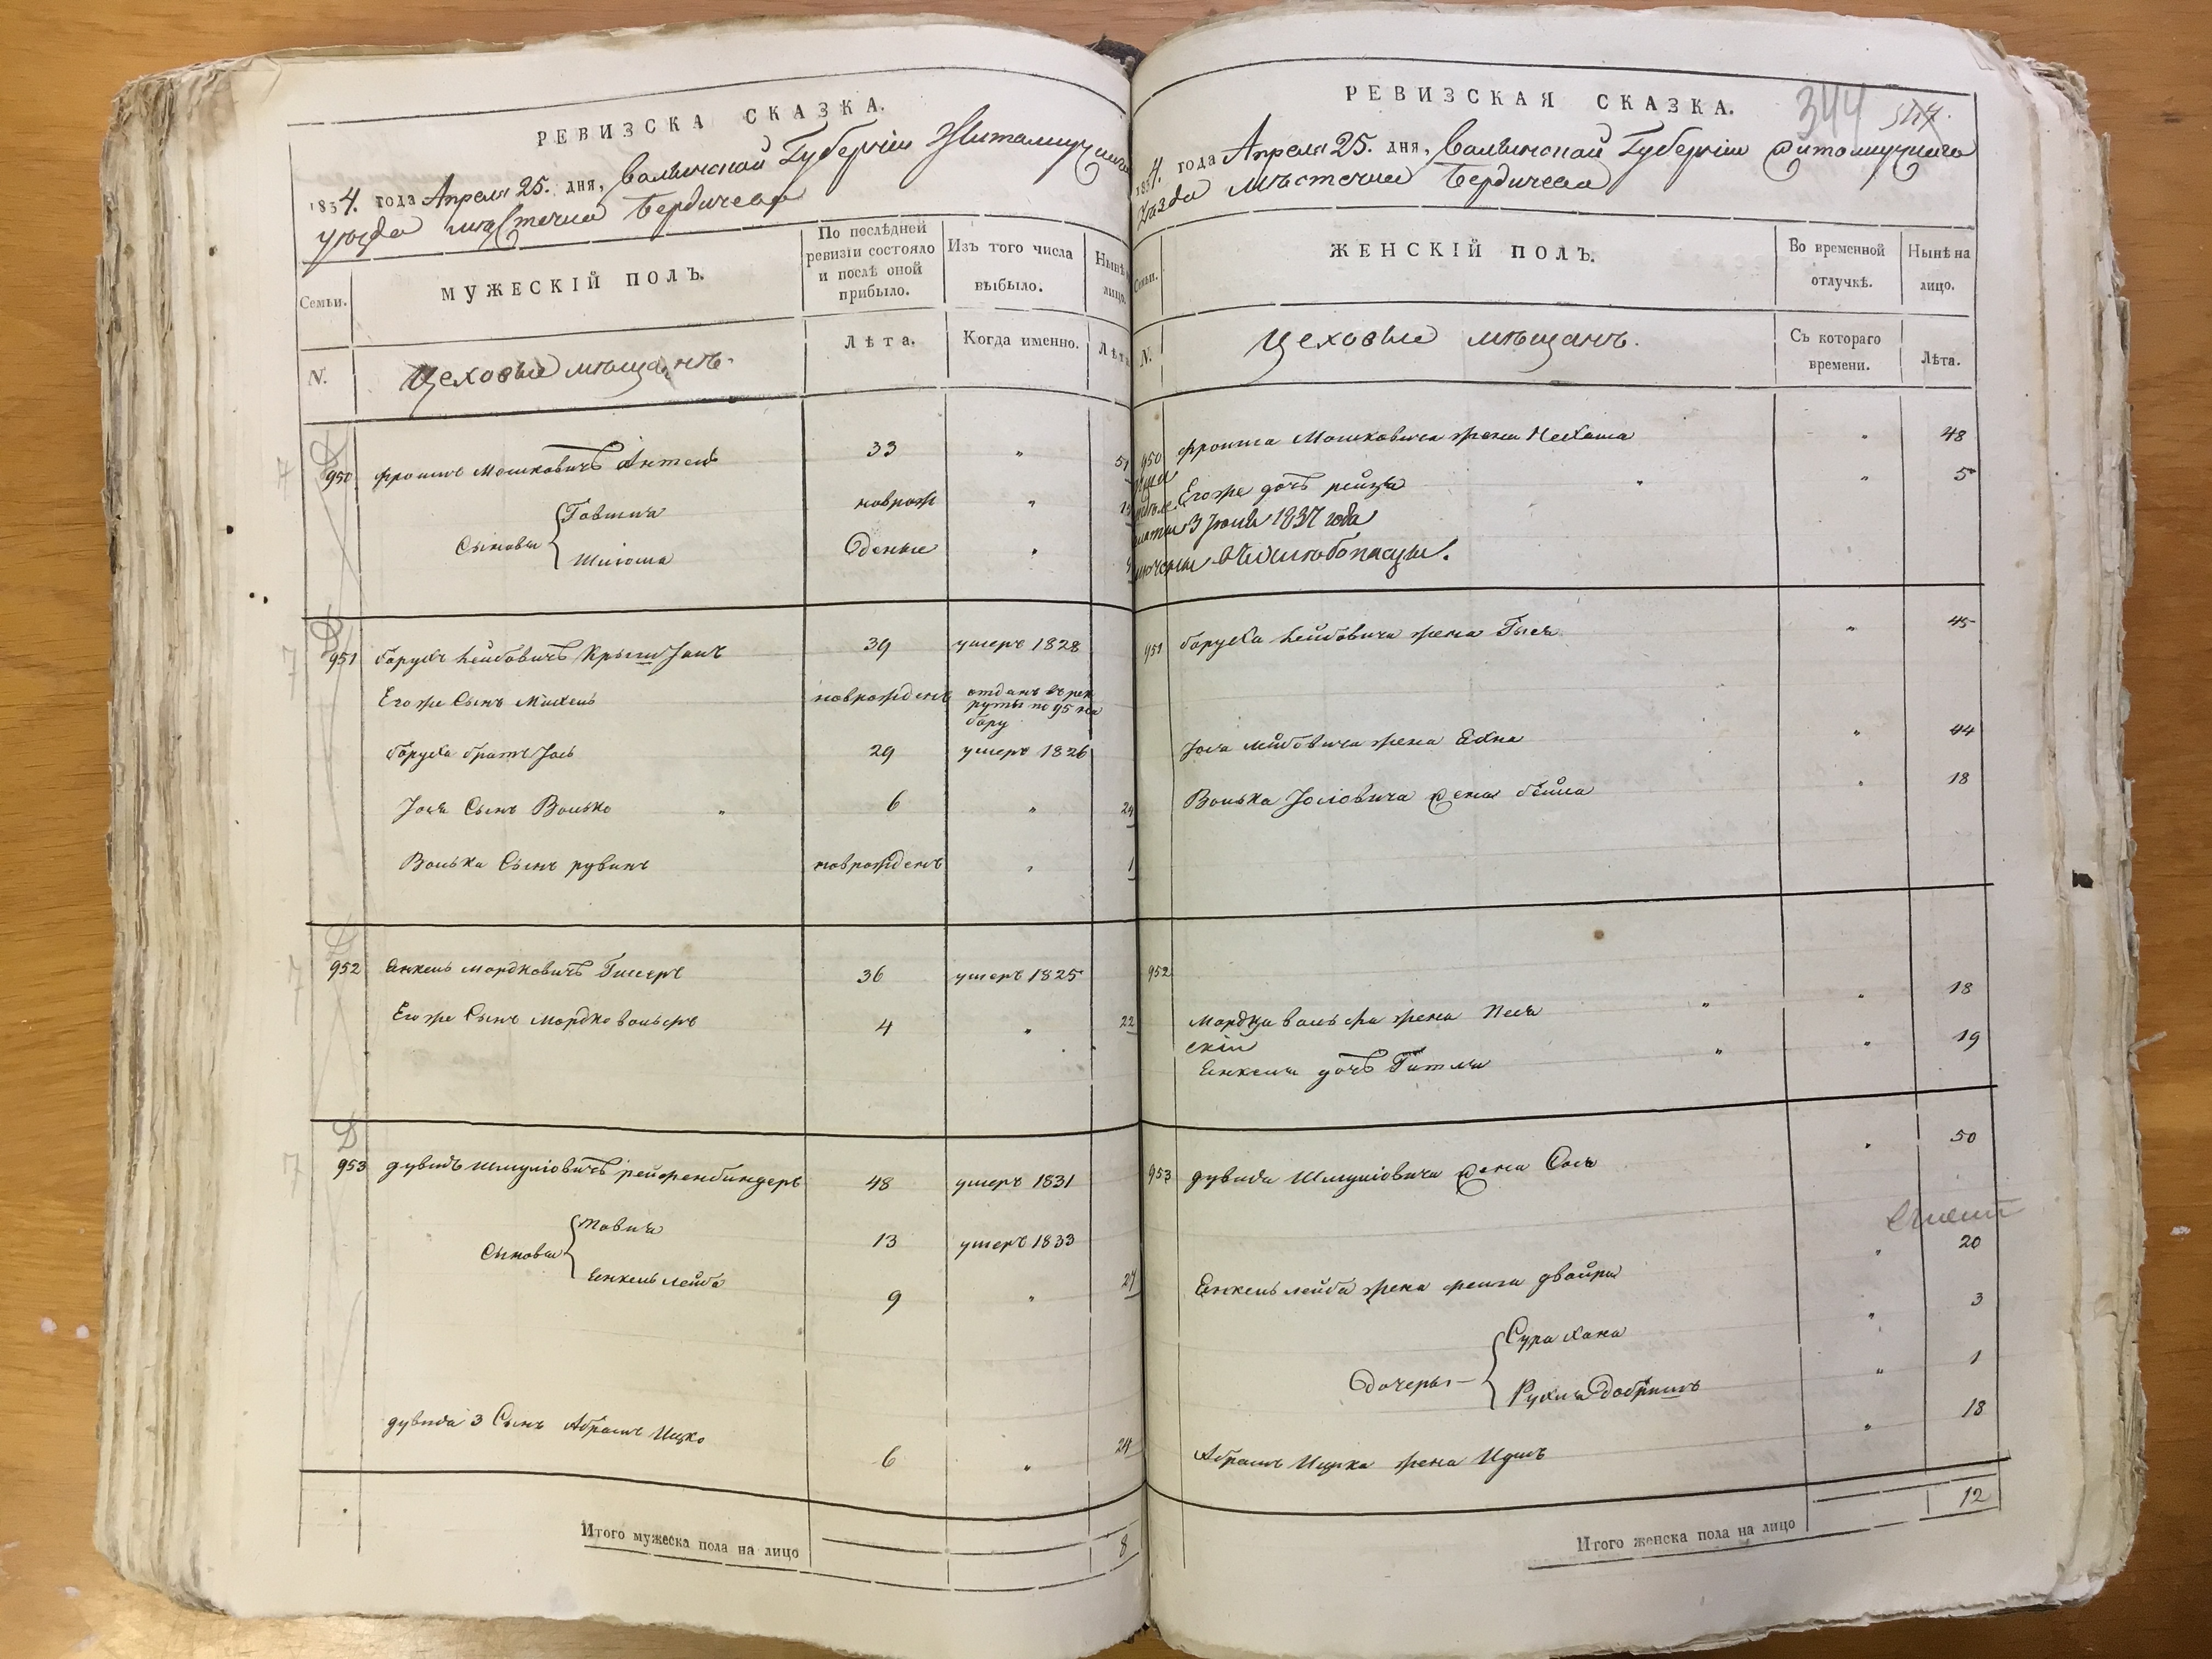 РЕВИЗСКА СКАЗКА.
1834. года Апреля 25. дня, Волынской Губернiи Житомирскаго
уезда местечка Бердичева
Семьи.
МУЖЕСКIЙ ПОЛЪ.
По послѣдней
ревизiи состояло
и послѣ оной
прибыло.
Изъ того числа
выбыло.
Нынѣ
лицо.
N.
Цеховые мѣщанъ.
Лѣта.
Когда именно.
Лѣта
950 Фроимъ Мошковичъ 33 " 51
Сыновья
Товшия новрож "
Шлiома " 
951 Борухъ Лейбовичъ 39 умеръ 1828
Его же Сынъ Михель новрожденъ отданъ въ рек
руты по 95 на
бору
Боруха братъ Iось 29 умеръ 1826
Iося Сынъ Волько " 6 " 24
Волька Сынъ рувинъ новрожденъ " 1
952 Янкель Мордковичъ Гисеръ 36 умеръ 1825
Его же Сынъ Мордко Вольфъ 4 " 22
953 дувидъ Шмулiовичъ рейфенбиндеръ 48 умеръ 1831
Сыновья
Товия 13 умеръ 1833
Янкель лейба 9 " 27
дувида 3 Сынъ Абрамъ Ицко 6 " 24
Итого мужеска пола на лицо 8
РЕВИЗСКАЯ СКАЗКА.
344
1834. года Апреля 25. дня, Волынской Губернiи Житомирскаго
уезда Мѣстечка Бердичева
Семьи.
ЖЕНСКIЙ ПОЛЪ.
Во временной
отлучкѣ.
Нынѣ на
лицо.
N.
Цеховые мѣщанъ.
Съ котораго
времени.
Лѣта.
950 Фроима Мошковича жена Нехама " 48
Его же дочь рейзя " " 5
3 Iюля 1837 года
951 Боруха Лейбовича жена Гися " 45
Iося Лейбовича жена Ехна " 44
Волька Iосiовича жена бейла " 18
952
Мордка Вольфа жена Песя " " 18
Янкеля дочь Гитля " " 19
953 дувида Шмулiовича жена Сося " 50
Янкель лейба жена фейга двойра " 20
Дочеры
Сура хана " 3
Рухля Добришъ " 1
Абрамъ Ицка жена Идись " 18
Итого женска пола на лицо 12